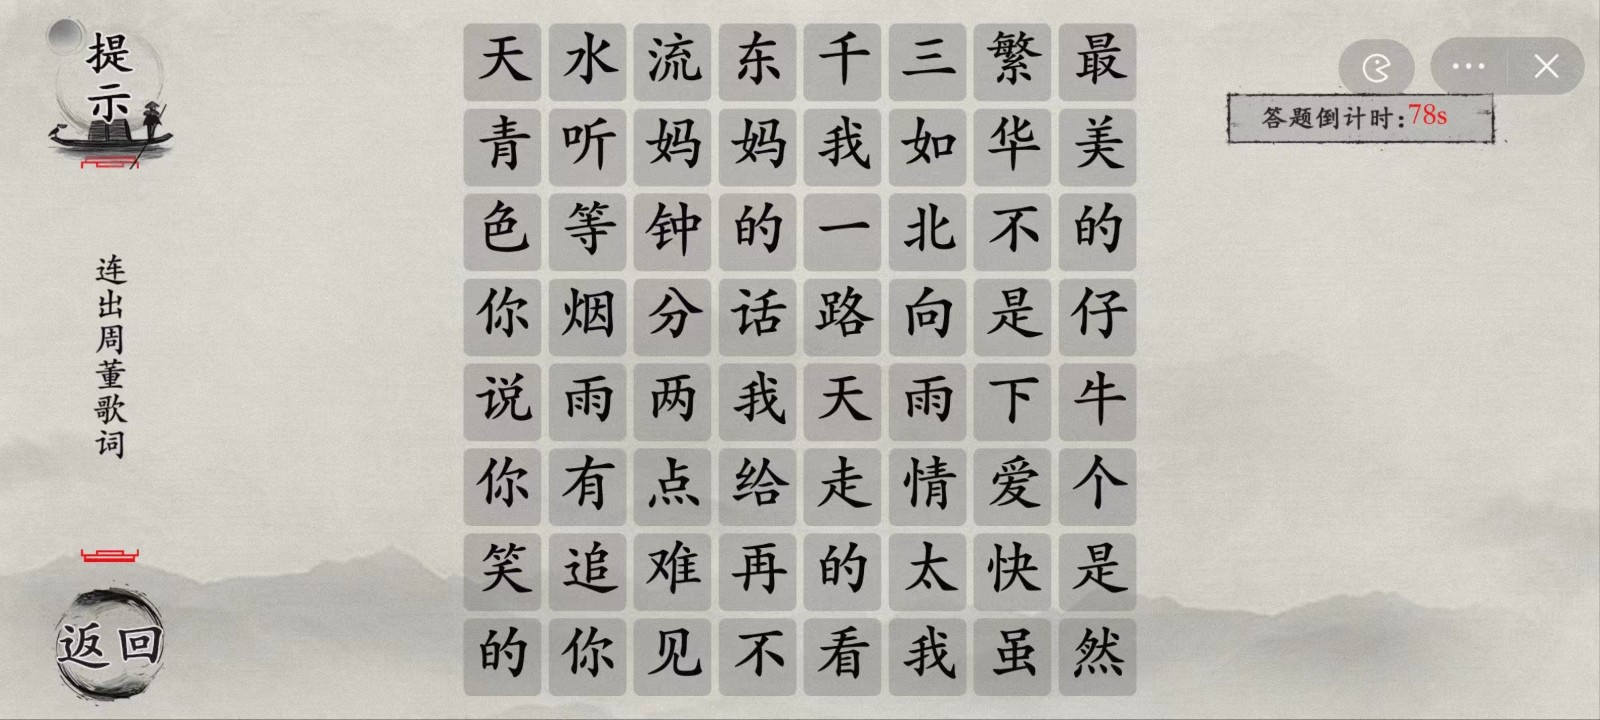 提示
连出周董歌词
返回
天水流东千三繁最
青听妈妈我如华美
色等钟的一北不的
你烟分话路向是仔
说雨两我天雨下牛
你有点给走情爱个
笑追难再的太快是
的你见不看我虽然
答题倒计时:78s